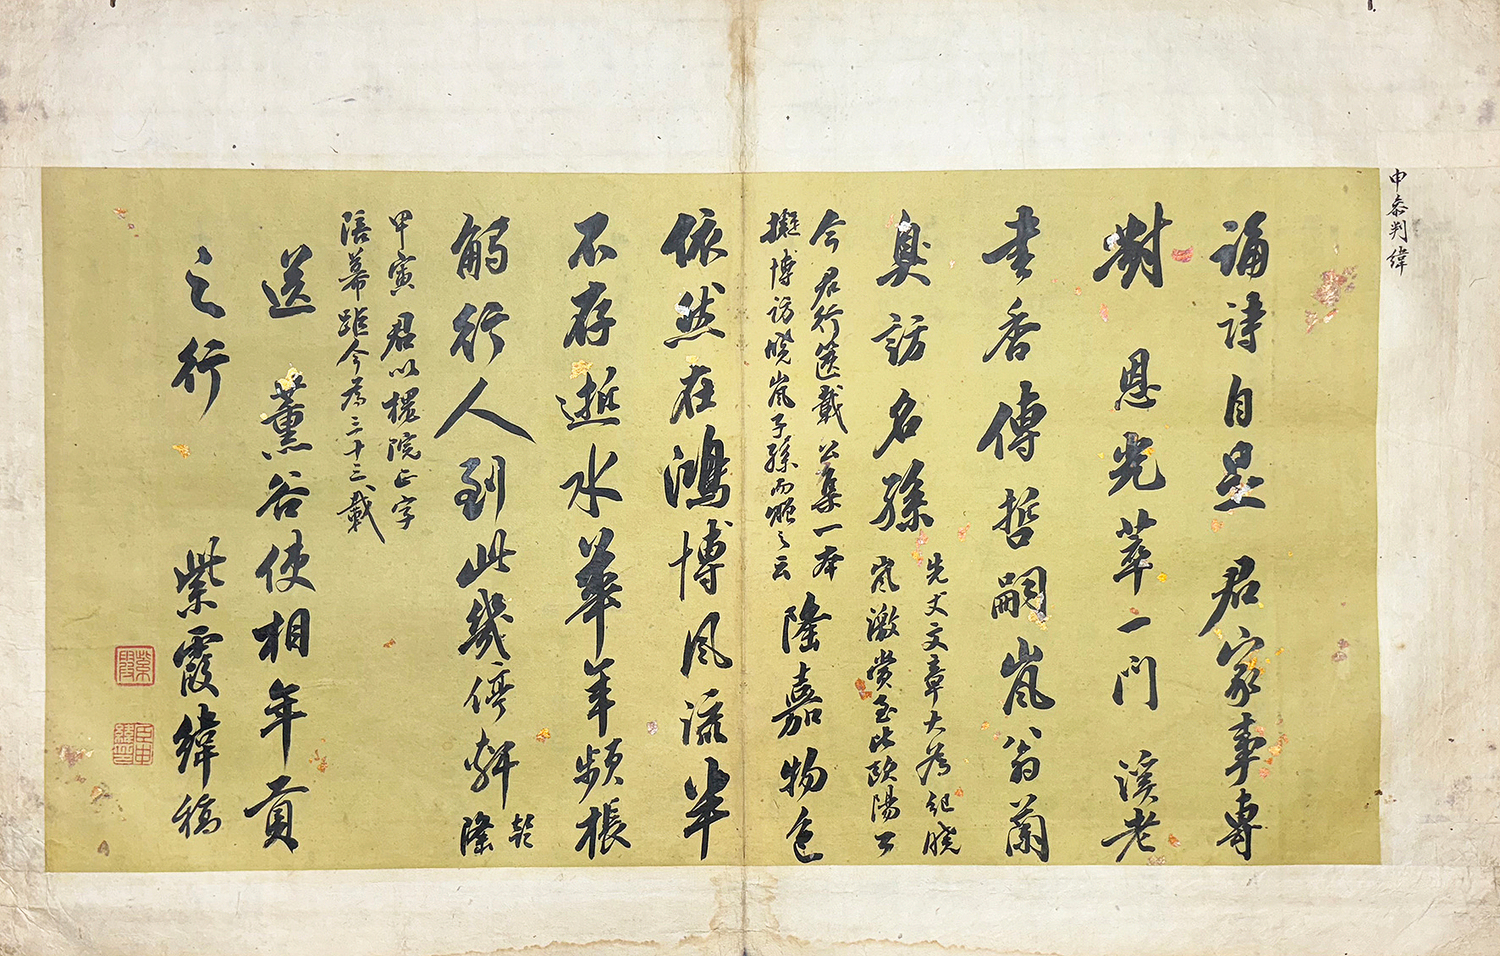 申叅判緯
誦詩自是 君家事專
對 恩光萃一門 溪老
書香傳哲嗣嵐翁蘭
臭訪名孫
先丈文章大爲紀曉
嵐激賞至比歐陽公
今 君行篋載公集一本
擬博訪曉嵐子孫而贈之云
隆嘉物色
依然在鴻博風流半
不存逝水華年頻悵
觸行人到此幾停軒
乾
隆
甲寅 君以槐院正字
陪幕距今爲三十三載
送 薰谷使相年貢
之行 紫霞緯稿
紫霞